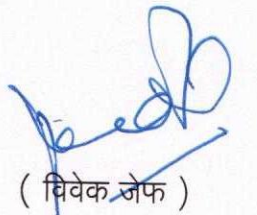 ( विवेक जेफ )